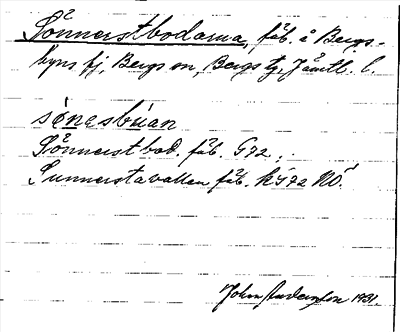 Sönnerstbodarna, fäb. å Bergs-
byns fj, Bergs sn, Bergs tg, Jämtl. l.
sønesbúan
Sönnerst bod. fäb. G72.
Sunnerstavallen fäb. KG72 NÖ.
1931